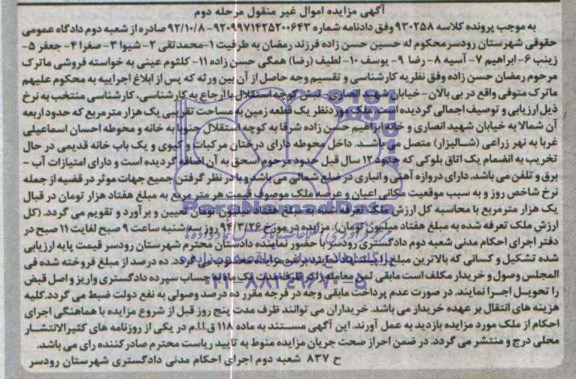 آگهی مزایده اموال غیر منقول مرحله دوم
به موجب پرونده کلاسه ۹۳۰۲۵۸ وفق دادنامه شماره ۹۲۰۹۹۷۱۴۲۵۲۰۰۶۴۳-۹۲/۱۰/۸ صادره از شعبه دوم دادگاه عمومی
حقوقی شهرستان رودسر محکوم له حسین حسن زاده فرزند رمضان به طرفیت ۱- محمدتقی ۲- شیوا ۳- صغرا ۴- جعفر ۵-
زینب ۶- ابراهیم ۷- آسیه ۸- رضا ۹- یوسف ۱۰- لطیف (رضا) همگی حسن زاده ۱۱- کلثوم عینی به خواسته فروش ماترک
مرحوم رمضان حسن زاده وفق نظریه کارشناسی و تقسیم وجه حاصل از آن بین ورثه که پس از ابلاغ اجراییه به محکوم علیهم
ماترک متوفی واقع در بی بالان - خیابان شهید انصاری - نبش کوچه استقلال با ارجاع به کارشناسی، کارشناسی منتخب به نرخ
ذیل ارزیابی و توصیف اجمالی گردیده است. ملک موردنظر یک قطعه زمین به مساحت تقریبی یک هزار مترمربع که حدود اربعه
آن شمالا به خیابان شهید انصاری و خانه ابراهیم حسن زاده شرقا به کوچه استقلال جنوبا به خانه و محوطه احسان اسماعیلی
غربا به نهر زراعی (شالیزار) متصل می باشد. داخل محوطه دارای درختان مرکبات و کیوی و یک باب خانه قدیمی در حال
تخریب به انضمام یک اتاق بلوکی که حدود ۱۲ سال قبل حدود مرحوم اسحق به آن اضافه گردیده است و دارای امتیازات آب -
برق و تلفن می باشد. دارای دروازه آهنی و انباری در ضلع شمالی می باشد و با در نظر گرفتن جمیع جهات موثر در قضیه از جمله
نرخ شاخص روز و به سبب موقعیت مکانی اعیان و عرصه ملک موصوف قیمت هر مترمربع به مبلغ هفتاد هزار تومان در قبال
یک هزار مترمربع با محاسبه کل ارزش ملک تعرفه شده به مبلغ هفتاد میلیون تومان تعیین و برآورد و تقویم می گردد. (کل
ارزش ملک تعرفه شده به مبلغ هفتاد میلیون تومان). مزایده در مورخ ۹۴/۳/۲۶ روز سه شنبه ساعت ۹ صبح لغایت ۱۱ صبح در
دفتر اجرای احکام مدنی شعبه دوم دادگستری رودسر با حضور نماینده دادستان محترم شهرستان رودسر قیمت پایه ارزیابی
شده تشکیل و کسانی که بالاترین مبلغ
المجلس وصول و خریدار مکلف است مابقی ثمن معامله را ظرف مدت یک ماه به حساب سپرده دادگستری واریز و اصل قبض
را تحویل اجرا نمایند. در صورت عدم پرداخت مابقی وجه در فرجه مقرر ده درصد وصولی به نفع دولت ضبط می گردد. کلیه
هزینه های انتقال بر عهده خریدار می باشد. خریداران می توانند ظرف مدت پنج روز قبل از شروع مزایده با هماهنگی اجرای
احکام از ملک مورد مزایده بازدید به عمل آورند. این آگهی مستند به ماده ۱۱۸ ق.ا.ا.م در یکی از روزنامه های کثیرالانتشار
محلی درج و منتشر می گردد. در ضمن احراز صحت جریان مزایده منوط به تایید ریاست محترم صادرکننده رای می باشد.
ح ۸۳۷ شعبه دوم اجرای احکام مدنی دادگستری شهرستان رودسر
ParsNamadData
۰۲۱-۸۸۳۴۹۶۷۰-۵